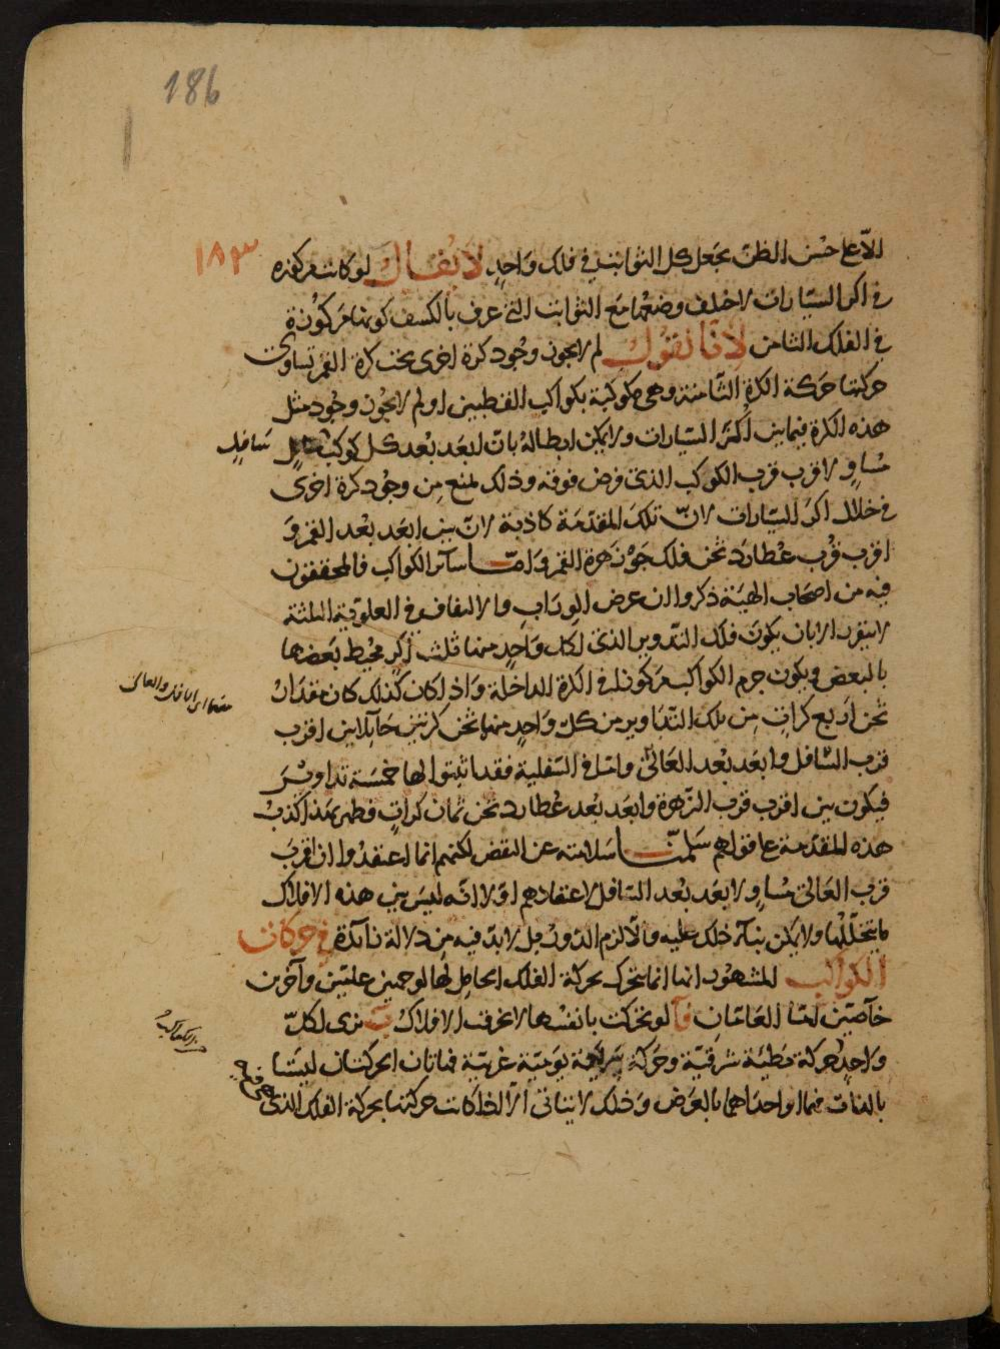 186
١٨٣
الا على حسن الظن بجعل كل الثوابت في فلك واحد لا يقال لو كانت مركوزة
في اكر السيارات لاختلف وضعها مع الثوابت التي عرف بالكسف كونها مركوزة
في الفلك الثامن لانا نقول لم لا يجوز وجود كرة اخرى تحت كرة القمر تساوى
حركتها حركة الكرة الثامنة وهي مكوكبة بكواكب القطبين او لم لا يجوز وجود مثل
هذه الكرة فيما بين اكر السيارات ولا يمكن ابطاله بان ابعد بعد كل كوكب سافل
سافل
مساو لاقرب قرب الكوكب الذى فرض فوقه وذلك لمنع من وجود كرة اخرى
في خلال اكر السيارات لان تلك المقدمة كاذبة لان بين ابعد بعد القمر و
اقرب قرب عطارد ثخن فلك جوزهرة القمر واما سائر الكواكب فالمحققون
فيه من اصحاب الهيئة ذكروا ان عرض الوراب والالتفاف في العلوية الثلثة
لا يتقرر الا بان يكون فلك التدوير الذى لكل واحد منها ثلث اكر محيط بعضها
بالبعض ويكون جرم الكواكب مركوزا في الكرة الداخلة واذا كان كذلك كان مقدار
ثخن اربع كرات من تلك التداوير من كل واحد منها ثخن كرتين حايلا بين اقرب
قرب السافل وابعد بعد العالى واما في السفلية فقد اثبتوا لها خمسة تداوير
فيكون بين اقرب قرب الزهرة وابعد بعد عطارد ثخن ثمان كرات فظهر بهذا كذب
هذه المقدمة على قولهم سلمنا سلامته عن النقض لكنهم انما اعتقدوا ان اقرب
قرب العالى مساو لابعد بعد السافل لاعتقادهم اولا انه ليس بين هذه الافلاك
ما يتخللها ولا يمكن بناء ذلك عليه والا لزم الدور بل لا بد فيه من دلالة زائدة في حركات
الكواكب المشهور انها انما تتحرك بحركة الفلك الحامل لها لوجهين عامين وآخرين
خاصين اما العامان فآ لو تحركت بانفسها لانخرقت الافلاك ب نرى لكل
واحد حركة بطيئة شرقية وحركة سريعة يومية غربية فهاتان الحركتان ليستا
بالذات فهما او احداهما بالعرض وذلك لا يتاتى الا اذا كانت حركتها بحركة الفلك الذى
هى فيه